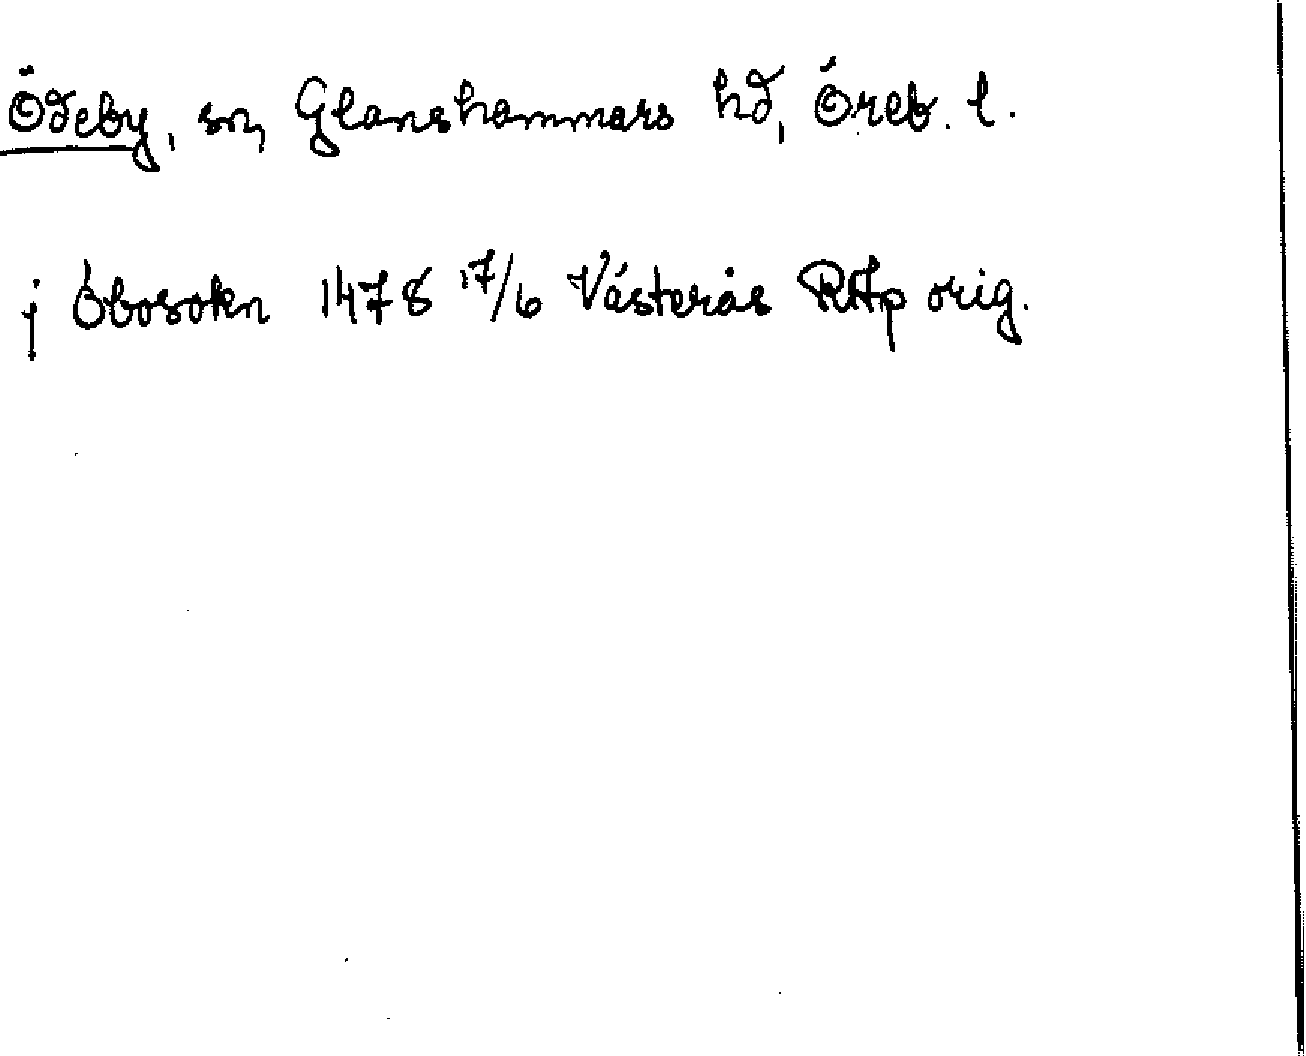 Ödeby, sn, Glanshammars hd, Öreb. l.
j Öbosokn 1478 17/6 Västerås RAp orig.